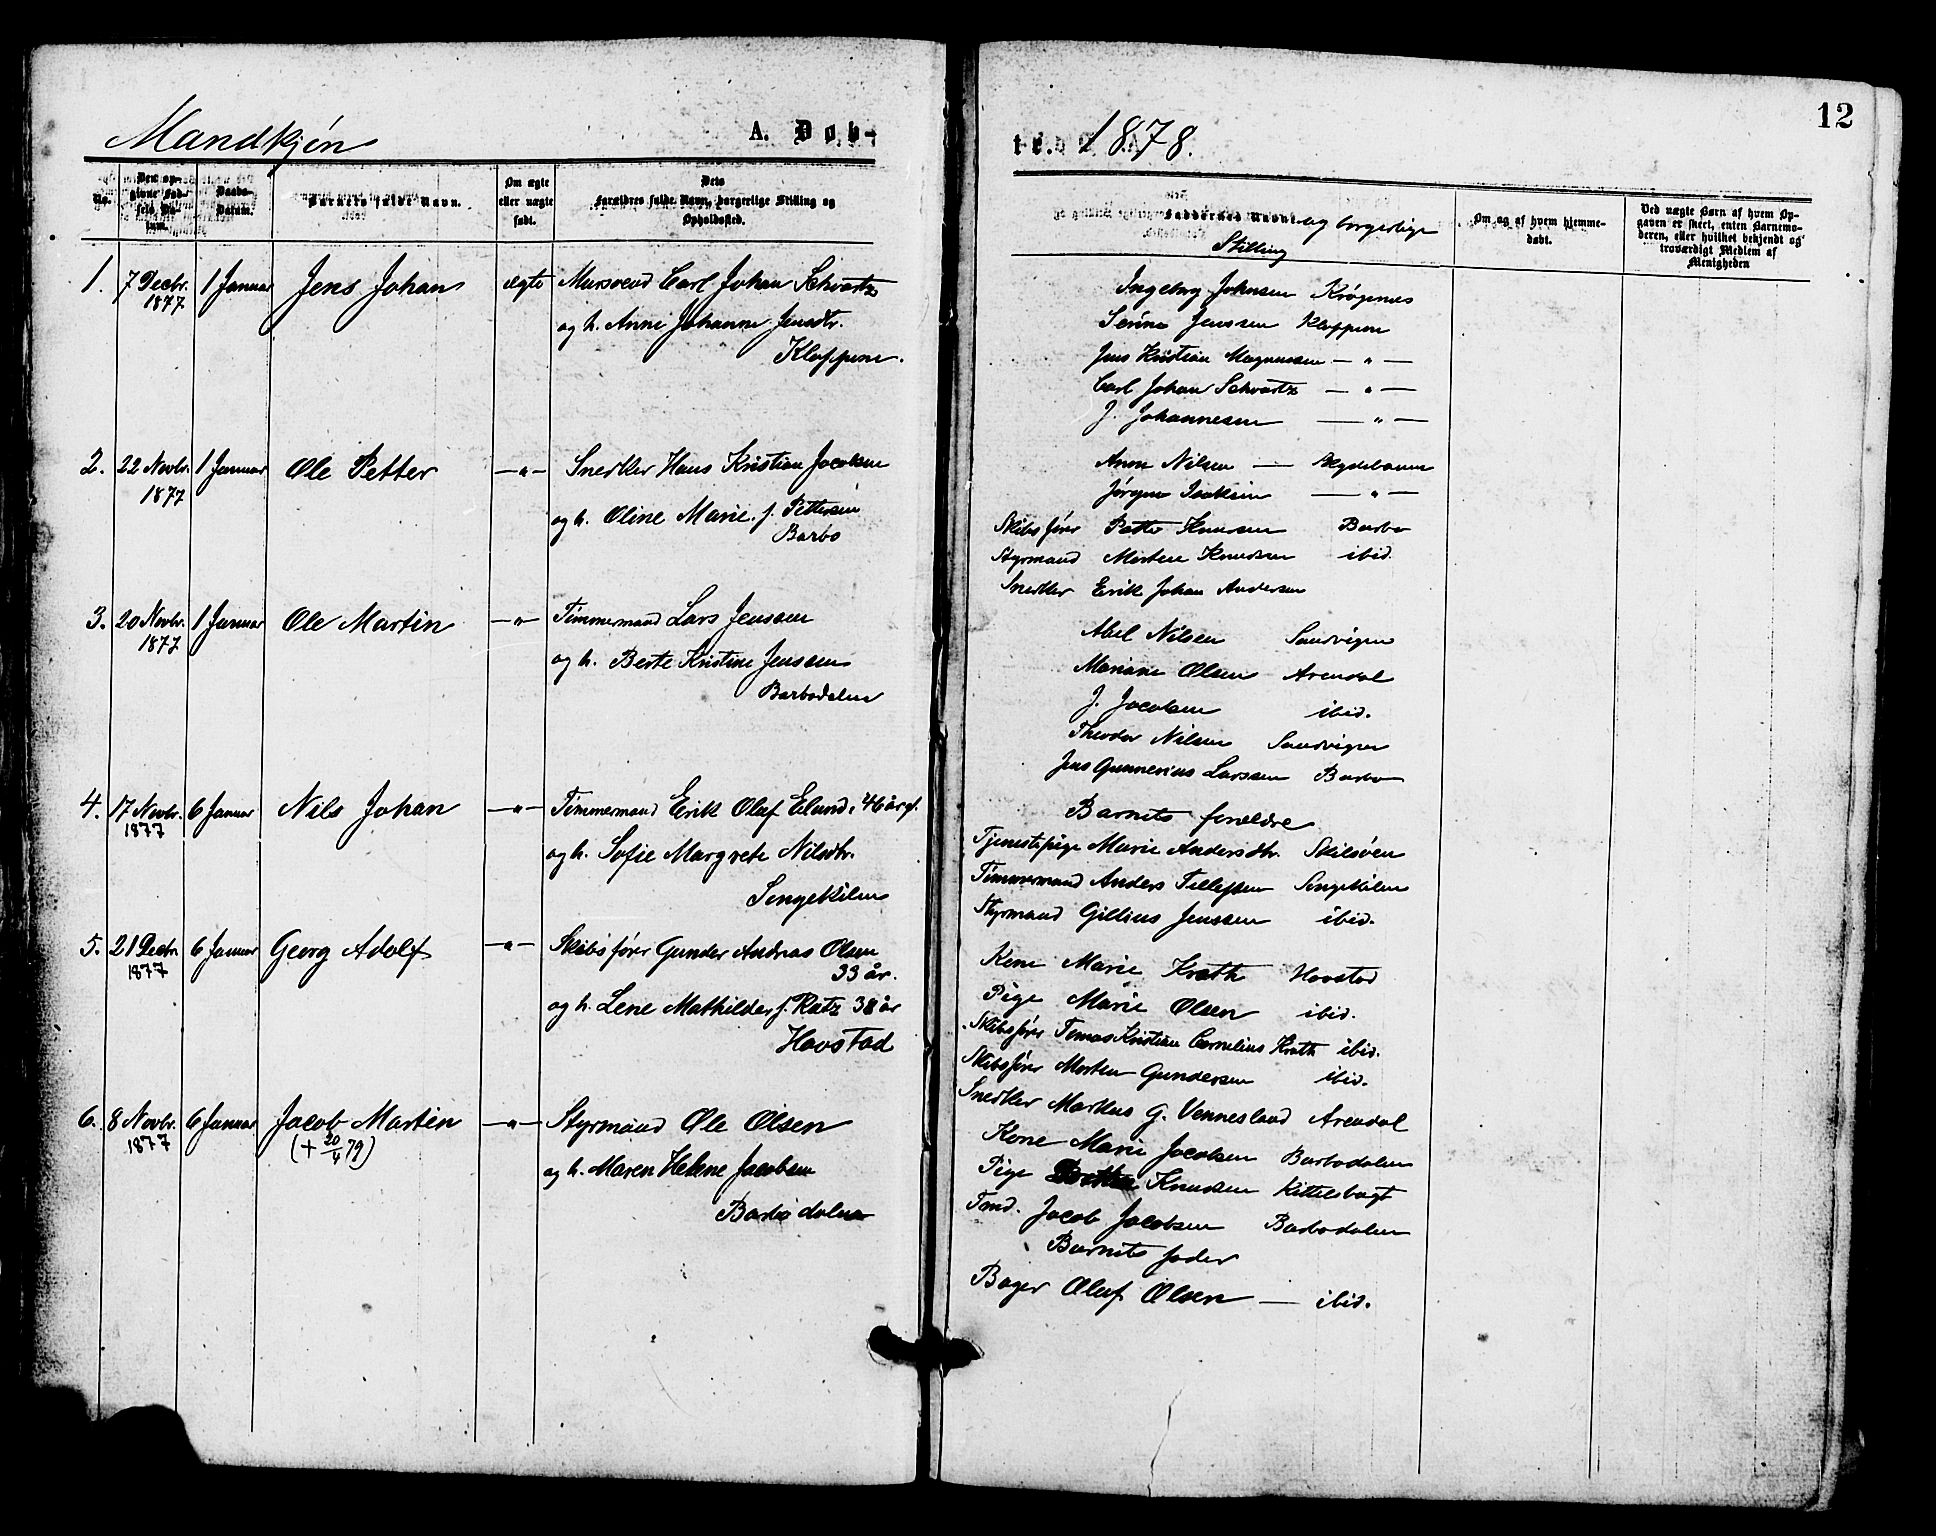 Mandkjøn
A. Døb-
No.
Den op-
givne Fød-
sels Da-
tum.
Daabs-
Datum.
Barnets fulde Navn.
Om ægte
eller uægte
født.
Dets
Forældres fulde Navn, borgerlige Stilling og
Opholdssted.
1. 7 Decbr. 1 Januar Jens Johan ægte Mursvend Carl Johan Schvartz
1877
og h. Anne Johanne Jensdtr.
Kloppene.
2. 22 Novbr. 1 Januar Ole Petter — " — Snedker Hans Kristian Jacobsen
1877
og h. Oline Marie f. Pettersen
Barbo
3. 20 Novbr. 1 Januar Ole Martin — " — Timmermand Lars Jenssen
1877
og h. Berte Kristine Jenssen
Barbodalen
4. 17 Novbr. 6 Januar Nils Johan — " — Timmermand Erik Olaf Elund, 46 år gl.
1877
og h. Sofie Margrete Nilsdtr.
Songekilen
5. 21 Decbr. 6 Januar Georg Adolf — " — Skibsfører Gunder Andreas Olsen
1877
33 år.
og h. Lene Mathilde f. Ratz 38 år
Hovstad
6. 8 Novbr. 6 Januar Jacob Martin — " — Styrmand Ole Olsen
1877
(+ 20/4 79)
og h. Maren Helene Jacobsen
Barbodalen
12
te. 1878.
Faddernes Navne og borgerlige
Stilling
Om og af hvem hjemme-
døbt.
Ved uægte Børn af hvem Op-
gaven er skeet, enten Barnemo-
deren, eller hvilket bekjendt og
troværdigt Medlem af
Menigheden
Ingeborg Johnsen Krøgenes
Serine Jenssen Kloppene
Jens Kristian Magnussen — " —
Carl Johan Schvartz — " —
J. Johannesen — " —
Anne Nilsen —
Jørgen Isaksen — " —
Skibsfører Petter Knudsen Barbo
Styrmand Morten Knudsen ibid.
Snedker Erik Johan Andersen
Abel Nilsen Sandvigen
Mariane Olsen Arendal
J. Jacobsen ibid.
Theodor Nilsen Sandvigen
Jens Gunnerius Larssen Barbo
Barnets forældre
Tjenestepige Marie Andersdtr. Skilsøen
Timmermand Anders Tellefsen Songekilen
Styrmand Gillius Jenssen ibid.
Kone Marie Krath Hovstad
Pige Marie Olsen ibid.
Skibsfører Tomas Kristian Cornelius Krath ibid.
Skibsfører Morten Gundersen ibid.
Snedker Markus G. Vennesland Arendal
Kone Marie Jacobsen Barbodalen
Pige Knudsen Kittelsbugt
Tmd. Jacob Jacobsen Barbodalen
Barnets fader
Bager Oluf Olsen — ibid.